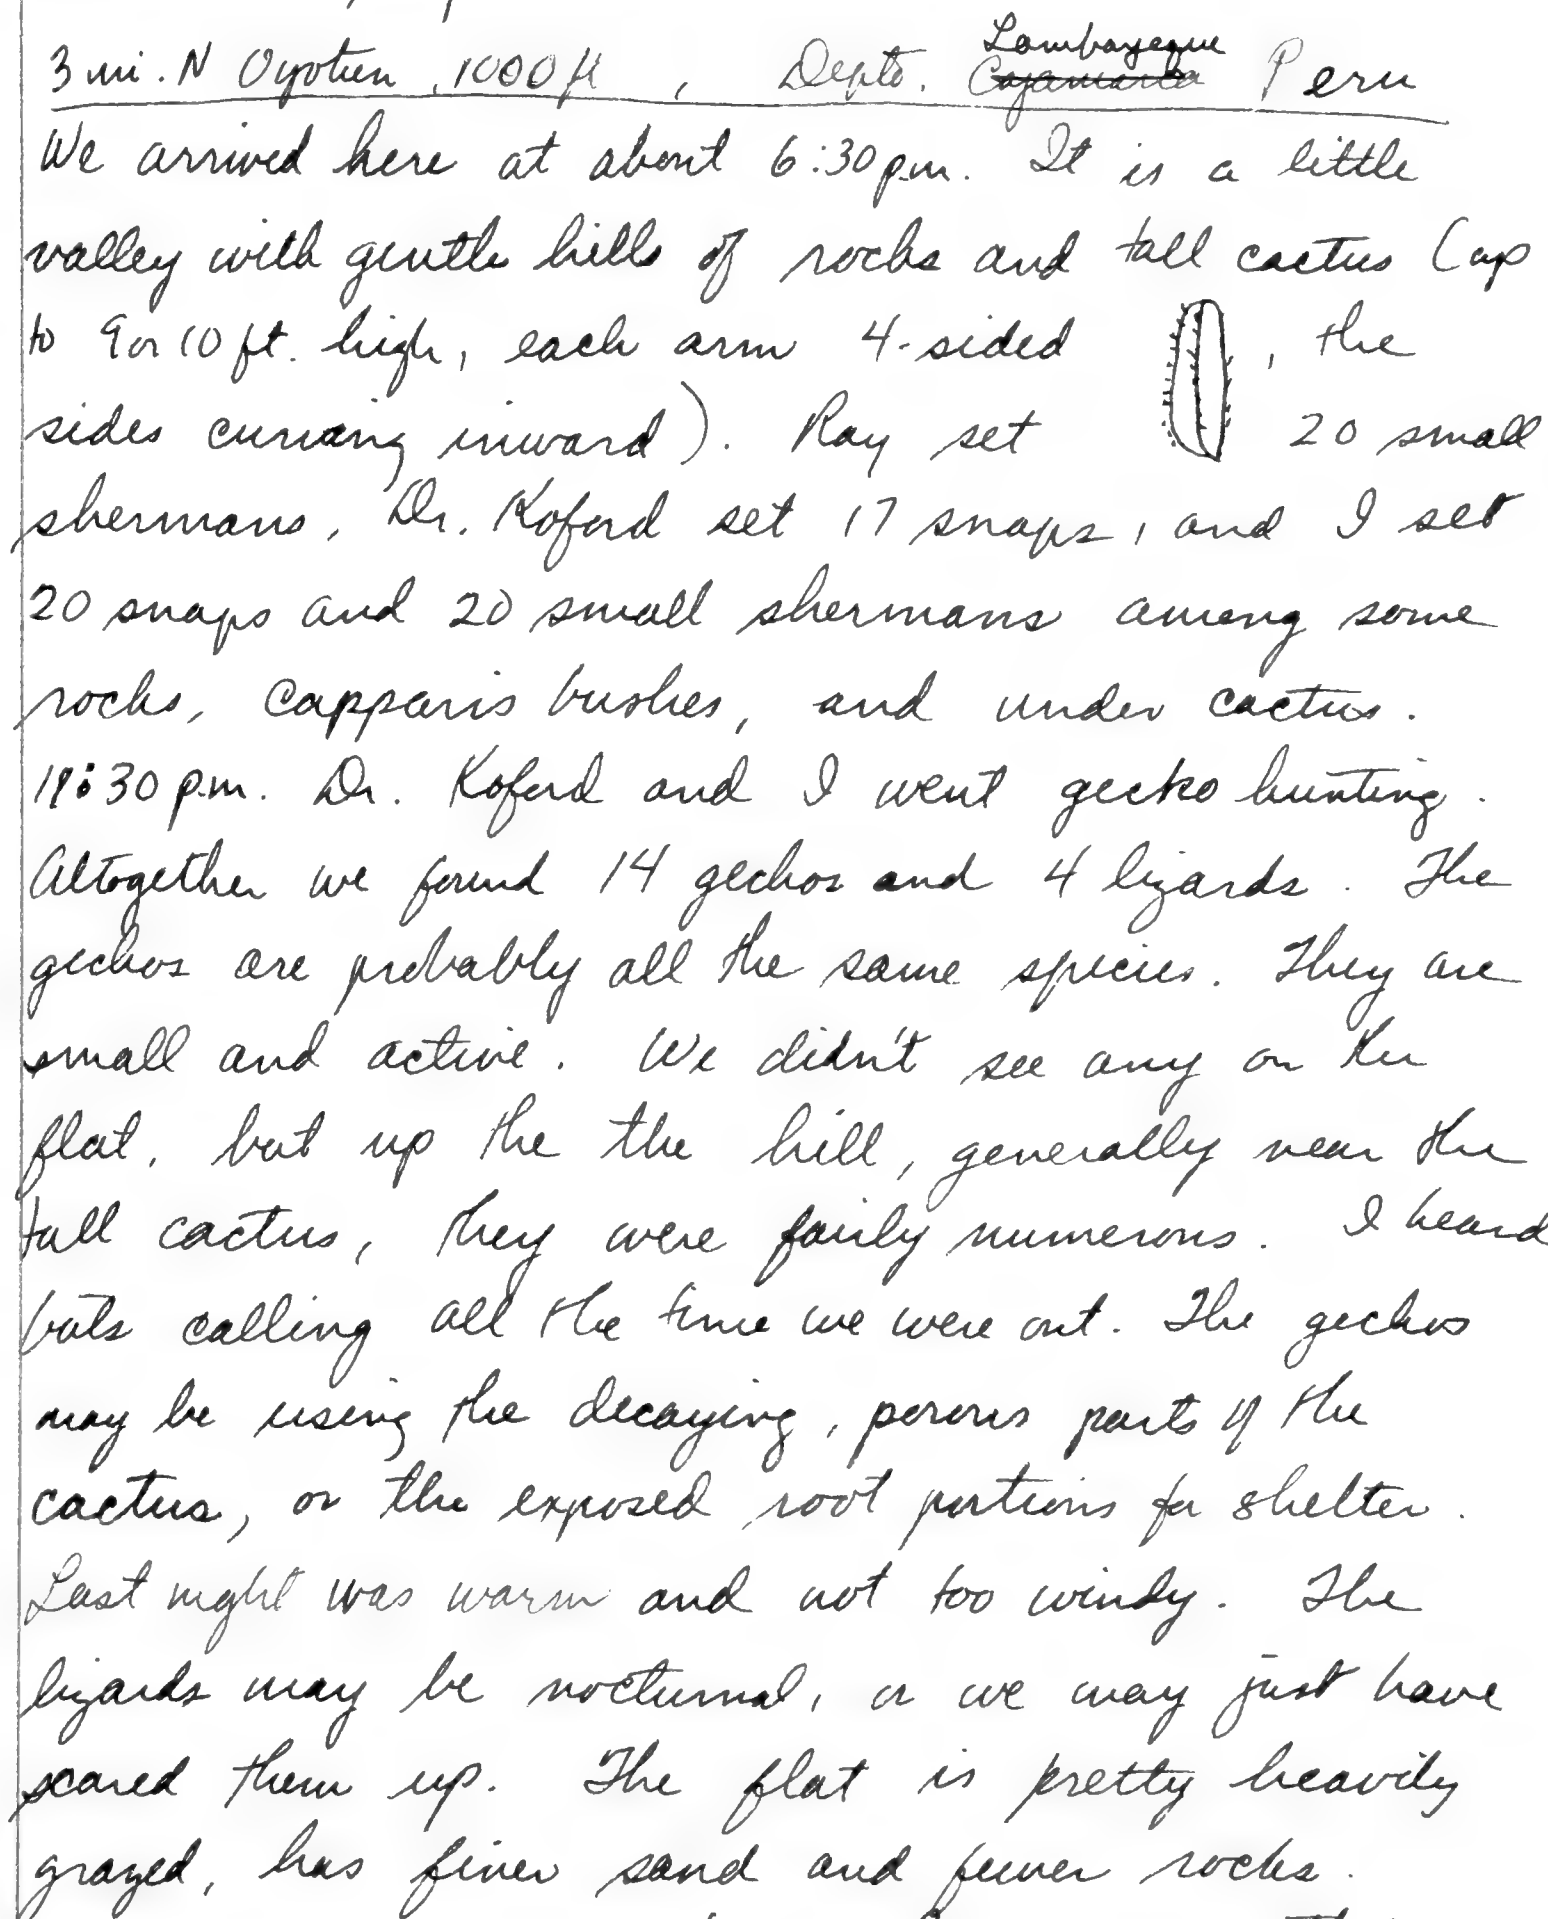 3 mi. N Oyotun, 1000 ft, Depto. Lambayeque Cajamarca Peru
We arrived here at about 6:30 p.m. It is a little
valley with gentle hills of rocks and tall cactus (up
to 9 or 10 ft. high, each arm 4-sided , the
sides curving inward). Ray set 20 small
shermans, Dr. Koford set 17 snaps, and I set
20 snaps and 20 small shermans among some
rocks, Capparis bushes, and under cactus.
:30 p.m. Dr. Koford and I went gecko hunting.
Altogether we found 14 geckos and 4 lizards. The
geckos are probably all the same species. They are
small and active. We didn't see any on the
flat, but up the the hill, generally near the
tall cactus, they were fairly numerous. I heard
bats calling all the time we were out. The geckos
may be using the decaying, porous parts of the
cactus, or the exposed root portions for shelter.
Last night was warm and not too windy. The
lizards may be nocturnal, or we may just have
scared them up. The flat is pretty heavily
grazed, has finer sand and fewer rocks.